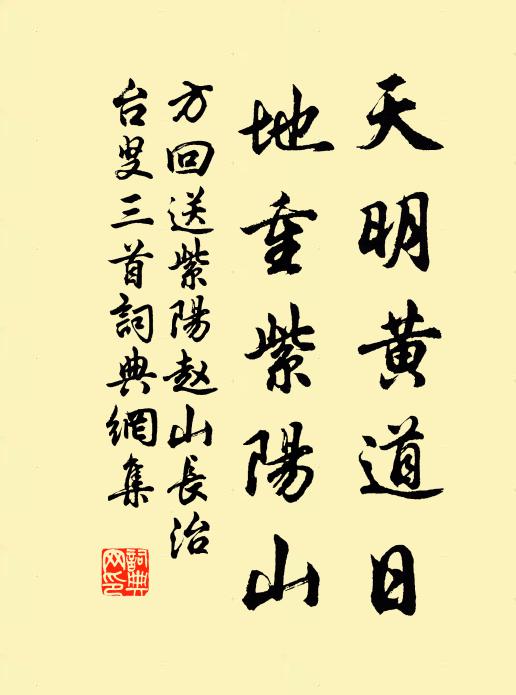 天明黄道日
地重紫陽山
方回送紫陽赵山長治
台叟三首詞典網集
詞典网印